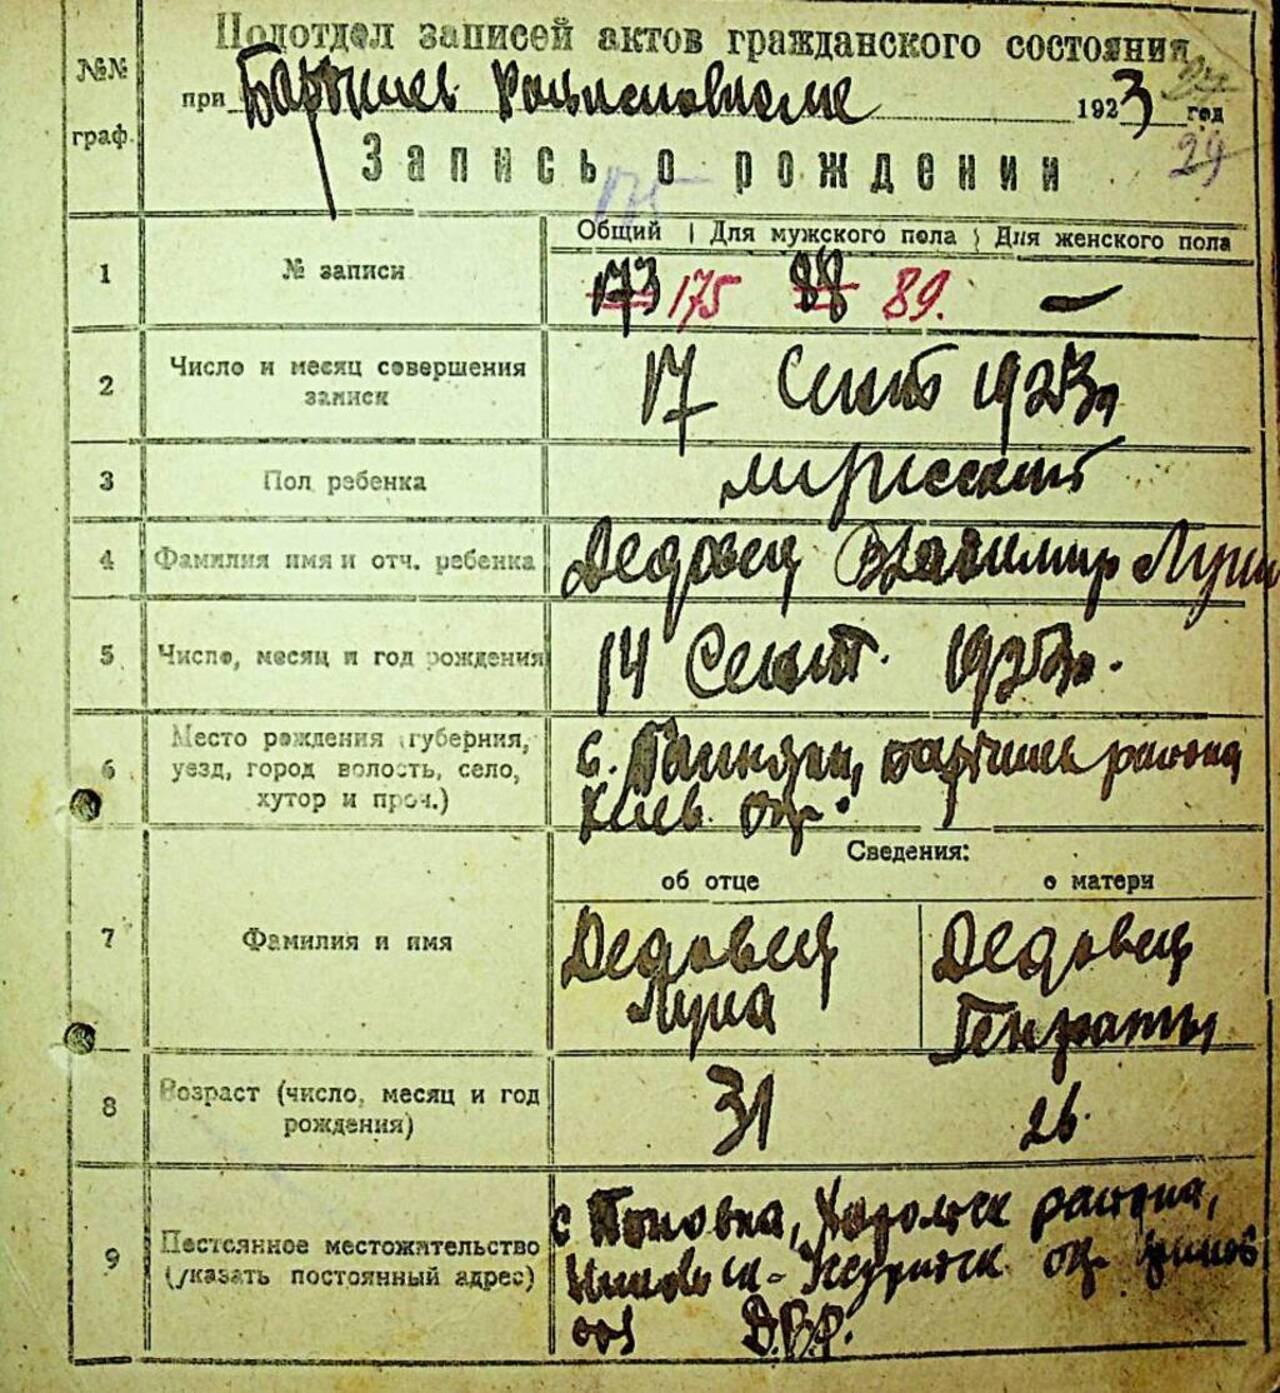 №№ граф.
Подотдел записей актов гражданского состояния
при Барышев 1923 год
24
Запись о рождении
29
175
Общий | Для мужского пола | Для женского пола
1 № записи 173 175 88 89. —
2 Число и месяц совершения
записи
17 Сент 1923 г
3 Пол ребенка мужеский
4 Фамилия имя и отч. ребенка Дедовец Владимир Луки
5 Число, месяц и год рождения 14 Сент. 1923 г.
6 Место рождения (губерния,
уезд, город волость, село,
хутор и проч.)
с. Барышев района
Киев. окр.
Сведения:
об отце о матери
7 Фамилия и имя
Дедовец Дедовец
Лука
8 Возраст (число, месяц и год
рождения)
31 26.
9 Постоянное местожительство
(указать постоянный адрес)
с Поповка, района,
окр.
Д.В.Р.